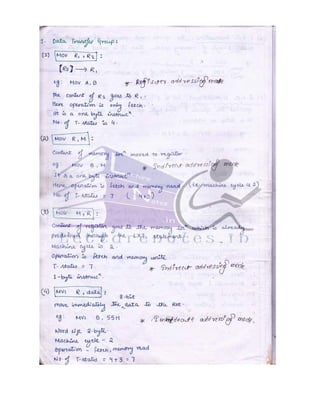 I. Data Transfer Group:
(1) MOV R1, R2 :
[R2] → R1
eg: MOV A, B * Register addressing mode
The content of R2 goes to R1.
Here operation is only fetch.
It is a one byte instrucn
No. of T-states is 4.
(2) MOV R, M :
Content of memory locn moved to register
eg: MOV B, M * Indirect addressing mode
It is a one byte instrucn
Here, operation is fetch and memory read (i.e. machine cycle is 2)
No of T-states = 7 (4+3)
(3) MOV M, R :
Content of register goes to the memory locn which is already
through the LXI
Machine cycle is 2.
Operation is fetch and memory write
T-states = 7 * Indirect addressing mode
1-byte instrucn
(4) MVI R, data :
8-bit
Move immediately the data to the
eg: MVI B, 55H * Immediate addressing mode.
Word size 2-byte
Machine cycle - 2
Operation - fetch, memory read
No of T-states = 4+3 = 7
Lecturenotes.in